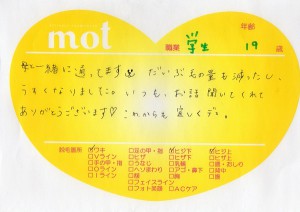 mot
職業 学生 年齢 19 歳
母と一緒に通ってます だいぶ毛の量も減ったし、
うすくなりました。いつも、お話聞いてくれて
ありがとうございます♡ これからも宜しくデス。
脱毛箇所
ワキ
Vライン
Iライン
Oライン
足の甲・指
ヒザ
うなじ
ヘソまわり
胸
フェイスライン
フォト美顔
ヒジ下
ヒザ下
乳輪
アゴ・鼻下
顔
ACケア
ヒジ上
ヒザ上
背中
腕